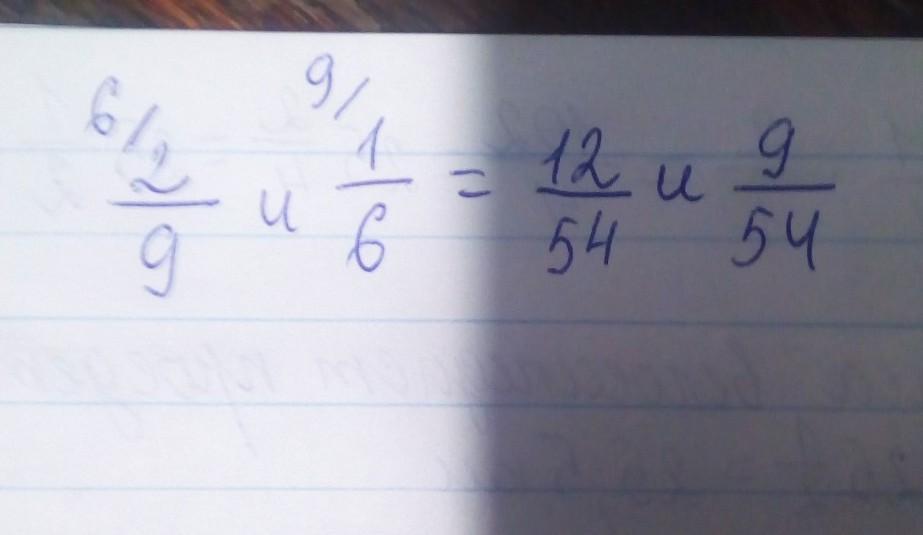 6/ 2/9 и 9/ 1/6 = 12/54 и 9/54